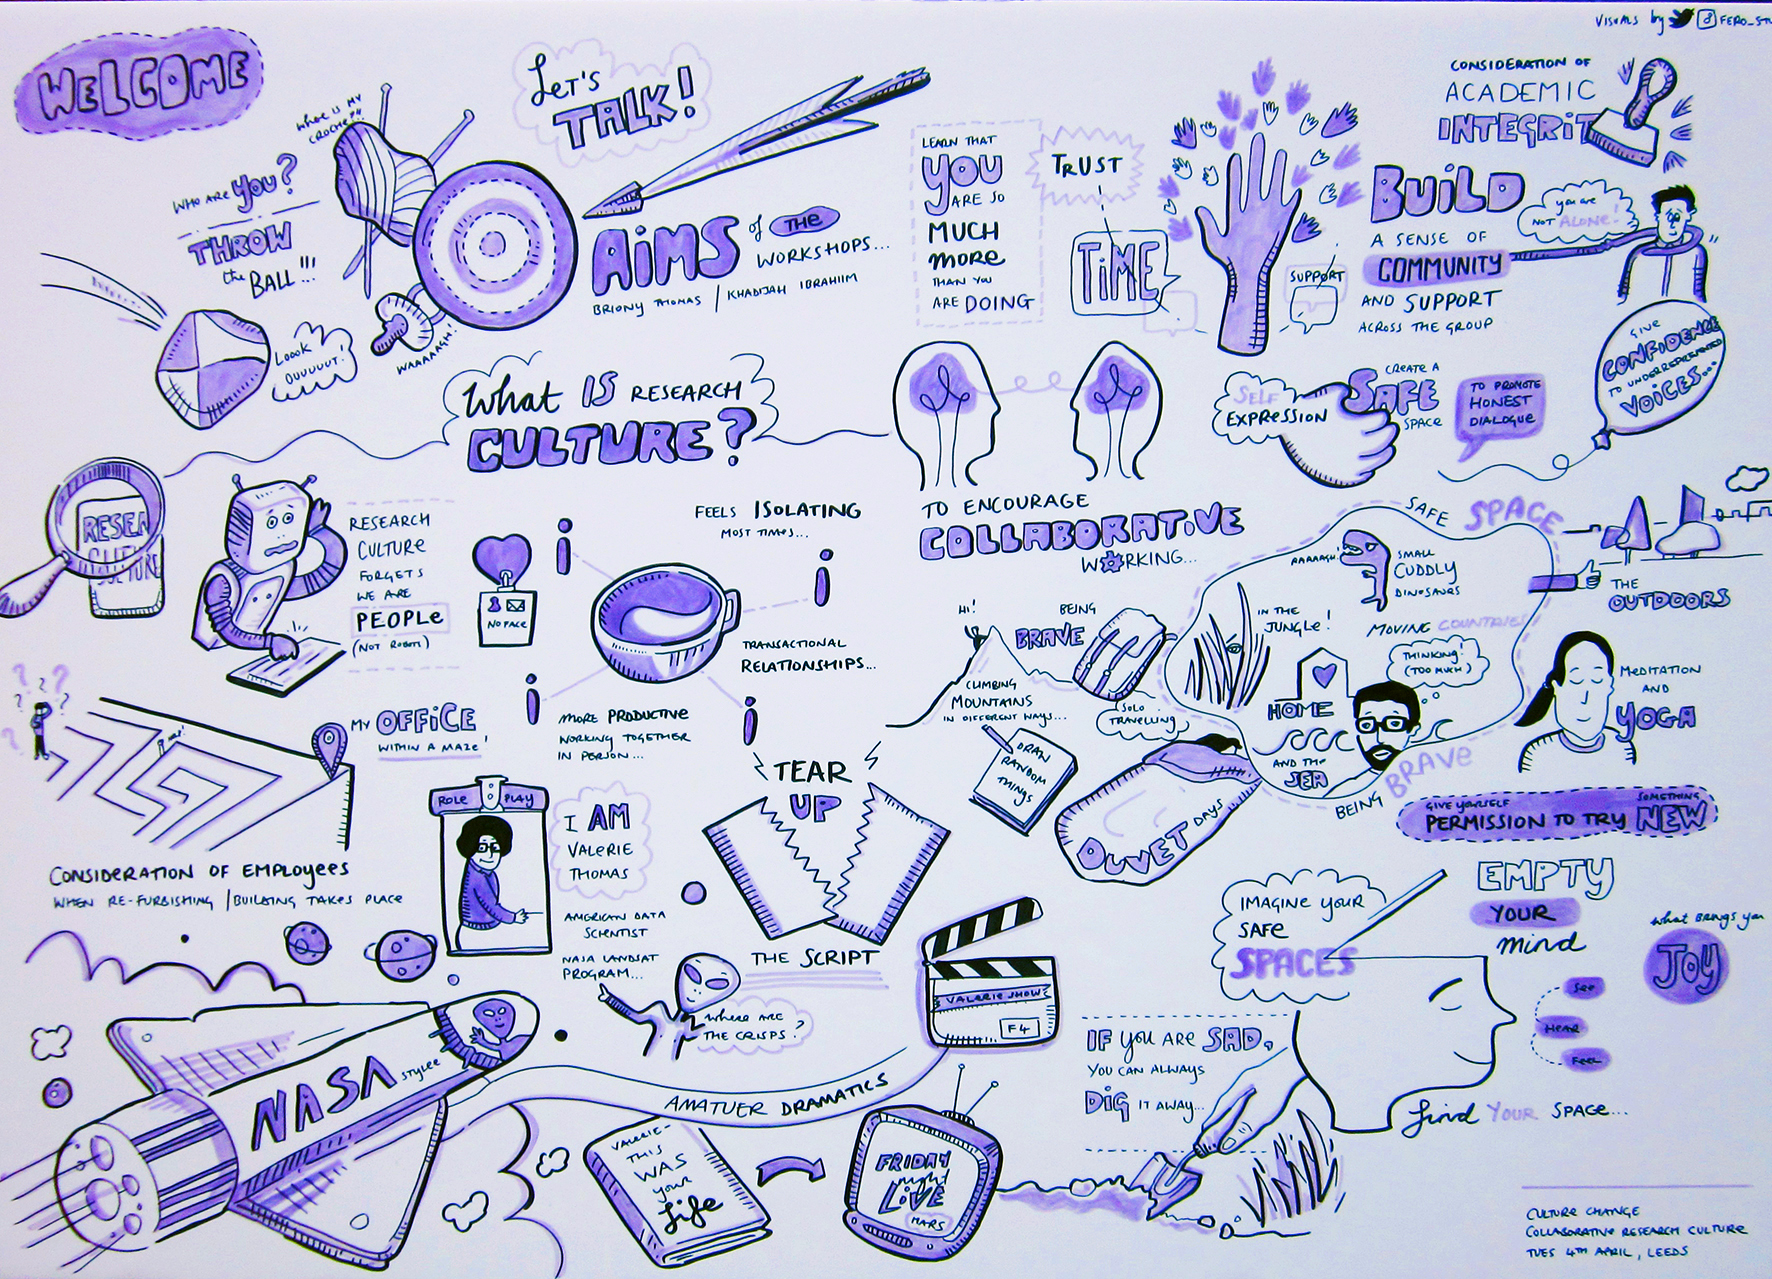 WELCOME
VISUALS by
LET'S
TALK!
WHO ARE YOU?
THROW
the
BALL!!!
LOOOK
OUUUUUT!
WAAAAAGH!
AIMS of the
WORKSHOPS...
BRIONY THOMAS / KHADIJAH IBRAHIIM
LEARN THAT
YOU
ARE SO
MUCH
more
THAN YOU
ARE DOING
TRUST
TIME
SUPPORT
CONSIDERATION OF
ACADEMIC
BUILD
A SENSE OF
COMMUNITY
AND SUPPORT
ACROSS THE GROUP
you are
NOT ALONE!
GIVE
CONFIDENCE
TO UNDERREPRESENTED
VOICES...
What IS RESEARCH
CULTURE?
SELF
EXPRESSION
CREATE A
SAFE
SPACE
TO PROMOTE
HONEST
DIALOGUE
TO ENCOURAGE
COLLABORATIVE
WORKING...
RESEARCH
CULTURE
FORGETS
WE ARE
PEOPLE
(NOT ROBOTS)
NO FACE
FEELS ISOLATING
MOST TIMES...
i
i
i
i
TRANSACTIONAL
RELATIONSHIPS...
MORE PRODUCTIVE
WORKING TOGETHER
IN PERSON...
? ? ? ? ?
MY OFFICE
WITHIN A MAZE!
CONSIDERATION OF EMPLOYEES
WHEN RE-FURBISHING / BUILDING TAKES PLACE
HI!
BEING
BRAVE
CLIMBING
MOUNTAINS
IN DIFFERENT WAYS...
SOLO
TRAVELLING
DRAW
RANDOM
THINGS
DUVET DAYS
SAFE SPACE
AAAAAGH!
SMALL
CUDDLY
DINOSAURS
IN THE
JUNGLE!
MOVING COUNTRIES
THINKING!
(TOO MUCH)
HOME
AND THE
SEA
BEING BRAVE
THE
OUTDOORS
MEDITATION
AND
YOGA
GIVE YOURSELF
PERMISSION TO TRY SOMETHING NEW
ROLE PLAY
I AM
VALERIE
THOMAS
AMERICAN DATA
SCIENTIST
NASA LANDSAT
PROGRAM...
TEAR
UP
THE SCRIPT
WHERE ARE
THE CRISPS?
VALERIE SHOW
F4
NASA STYLEE
AMATUER DRAMATICS
VALERIE-
THIS
WAS
your
Life
FRIDAY
night
LIVE
MARS
IMAGINE YOUR
SAFE
SPACES
EMPTY
YOUR
mind
WHAT BRINGS YOU
JOY
SEE
HEAR
FEEL
IF YOU ARE SAD,
YOU CAN ALWAYS
DIG IT AWAY...
find YOUR SPACE...
CULTURE CHANGE
COLLABORATIVE RESEARCH CULTURE
TUES 4TH APRIL, LEEDS